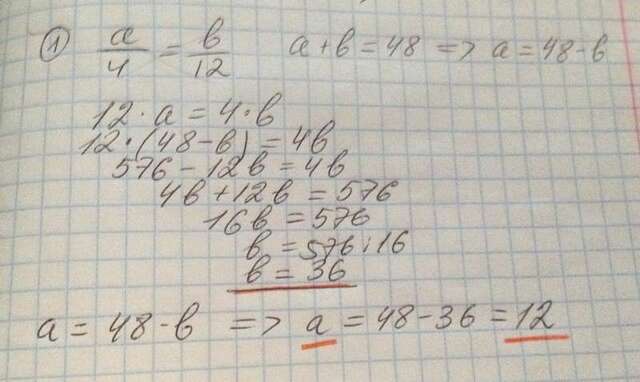 ① a/4 = b/12 a+b=48 => a=48-b
12·a=4·b
12·(48-b)=4b
576-12b=4b
4b+12b=576
16b=576
b=576:16
b=36
a=48-b => a=48-36=12